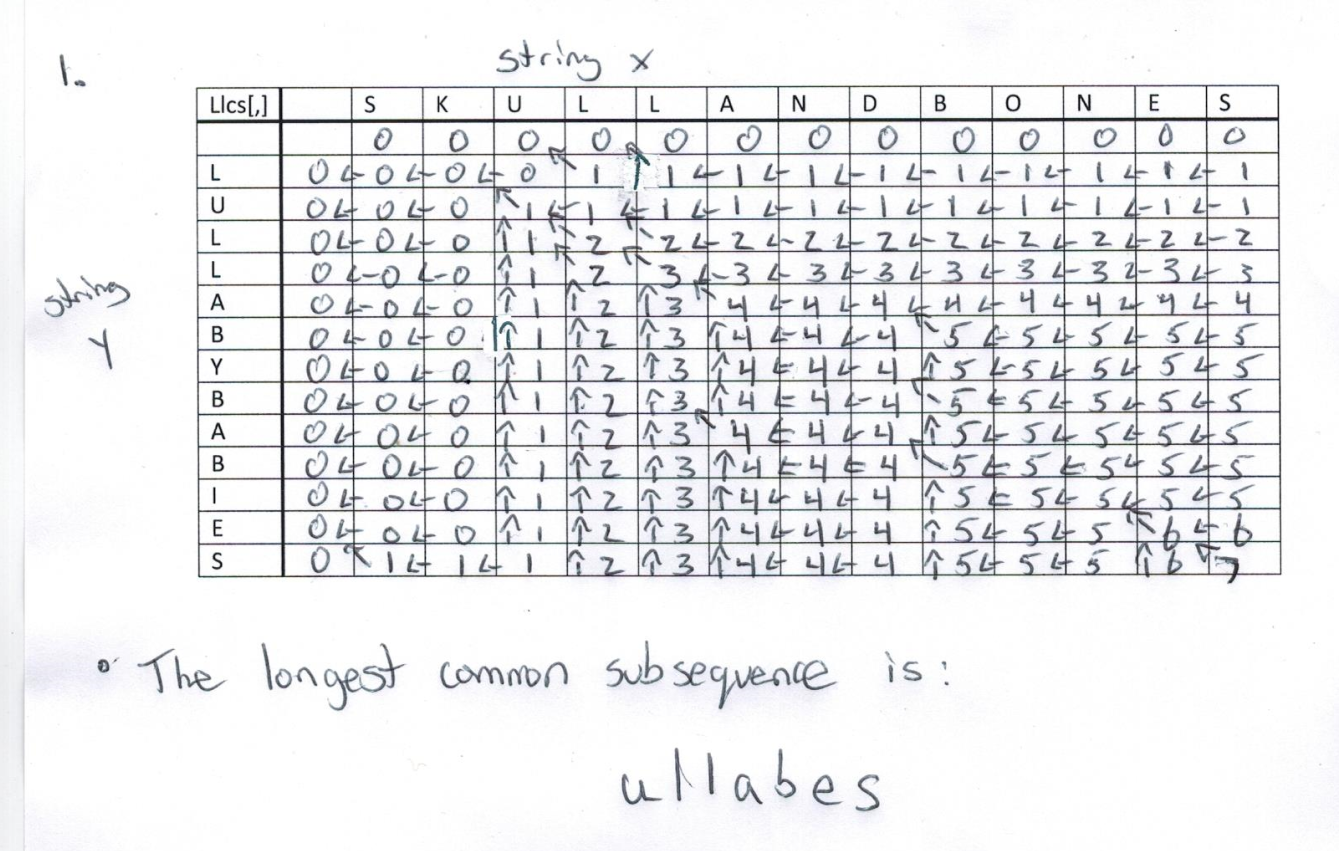 1.
string x
Llcs[,] S K U L L A N D B O N E S
0 0 0 0 0 0 0 0 0 0 0 0 0
L 0 ← 0 ← 0 ← 0 ↖ 1 ↑ 1 ← 1 ← 1 ← 1 ← 1 ← 1 ← 1 ← 1 ← 1
U 0 ← 0 ← 0 ↖ 1 ← 1 ← 1 ← 1 ← 1 ← 1 ← 1 ← 1 ← 1 ← 1 ← 1
L 0 ← 0 ← 0 ↑ 1 ↖ 2 ↖ 2 ← 2 ← 2 ← 2 ← 2 ← 2 ← 2 ← 2 ← 2
L 0 ← 0 ← 0 ↑ 1 ↖ 2 ↖ 3 ← 3 ← 3 ← 3 ← 3 ← 3 ← 3 ← 3 ← 3
string
Y
A 0 ← 0 ← 0 ↑ 1 ↑ 2 ↑ 3 ↖ 4 ← 4 ← 4 ← 4 ← 4 ← 4 ← 4 ← 4
B 0 ← 0 ← 0 ↑ 1 ↑ 2 ↑ 3 ↑ 4 ← 4 ← 4 ↖ 5 ← 5 ← 5 ← 5 ← 5
Y 0 ← 0 ← 0 ↑ 1 ↑ 2 ↑ 3 ↑ 4 ← 4 ← 4 ↑ 5 ← 5 ← 5 ← 5 ← 5
B 0 ← 0 ← 0 ↑ 1 ↑ 2 ↑ 3 ↑ 4 ← 4 ← 4 ↖ 5 ← 5 ← 5 ← 5 ← 5
A 0 ← 0 ← 0 ↑ 1 ↑ 2 ↑ 3 ↖ 4 ← 4 ← 4 ↑ 5 ← 5 ← 5 ← 5 ← 5
B 0 ← 0 ← 0 ↑ 1 ↑ 2 ↑ 3 ↑ 4 ← 4 ← 4 ↖ 5 ← 5 ← 5 ← 5 ← 5
I 0 ← 0 ← 0 ↑ 1 ↑ 2 ↑ 3 ↑ 4 ← 4 ← 4 ↑ 5 ← 5 ← 5 ← 5 ← 5
E 0 ← 0 ← 0 ↑ 1 ↑ 2 ↑ 3 ↑ 4 ← 4 ← 4 ↑ 5 ← 5 ← 5 ↖ 6 ← 6
S 0 ↖ 1 ← 1 ← 1 ↑ 2 ↑ 3 ↑ 4 ← 4 ← 4 ↑ 5 ← 5 ← 5 ↑ 6 ↖ 7
• The longest common subsequence is:
ullabes